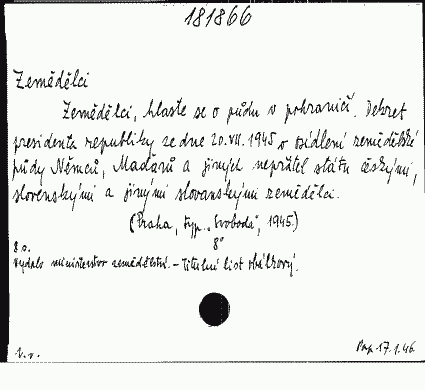 181866
Zemědělci
Zemědělci, hlaste se o půdu v pohraničí. Dekret
presidenta republiky ze dne 20.VII.1945 o osídlení zemědělské
půdy Němců, Maďarů a jiných nepřátel státu českými,
slovenskými a jinými slovanskými zemědělci.
(Praha, typ. „Svoboda", 1945.)
8 s. 8°
Vydalo ministerstvo zemědělství. - Titulní list obálkový.
V. r. Pap 17.1.46.